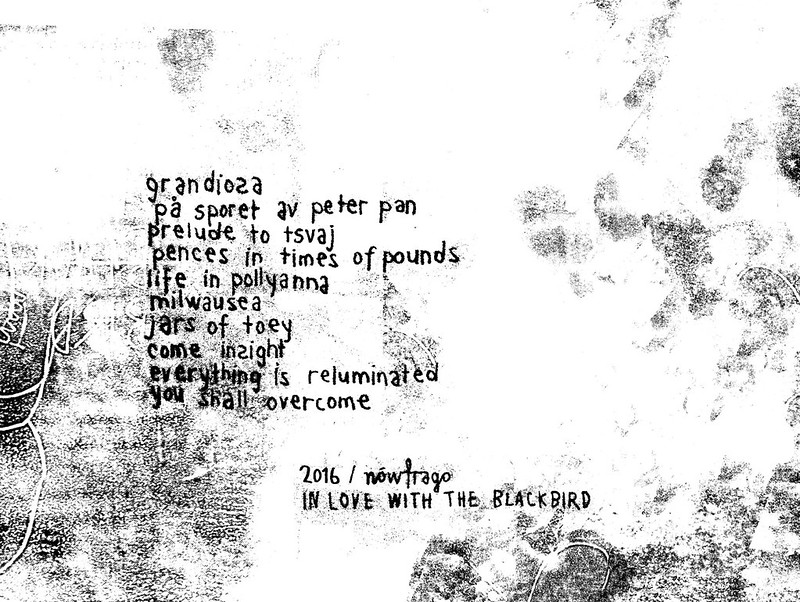 grandioza
på sporet av peter pan
prelude to tsvaj
pences in times of pounds
life in pollyanna
milwausea
jars of toey
come inzight
everything is reluminated
you shall overcome
2016 / nówfrago
IN LOVE WITH THE BLACKBIRD